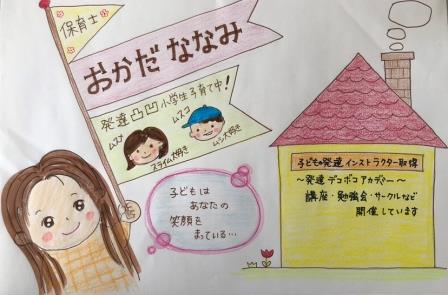 保育士
おかだ ななみ
発達凸凹小学生子育て中!
ムスメ
ムスコ
スライム大好き
ムシ大好き
子どもは
あなたの
笑顔を
まっている…
子どもの発達 インストラクター取得
～発達デコボコ アカデミー～
講座・勉強会・サークルなど
開催しています